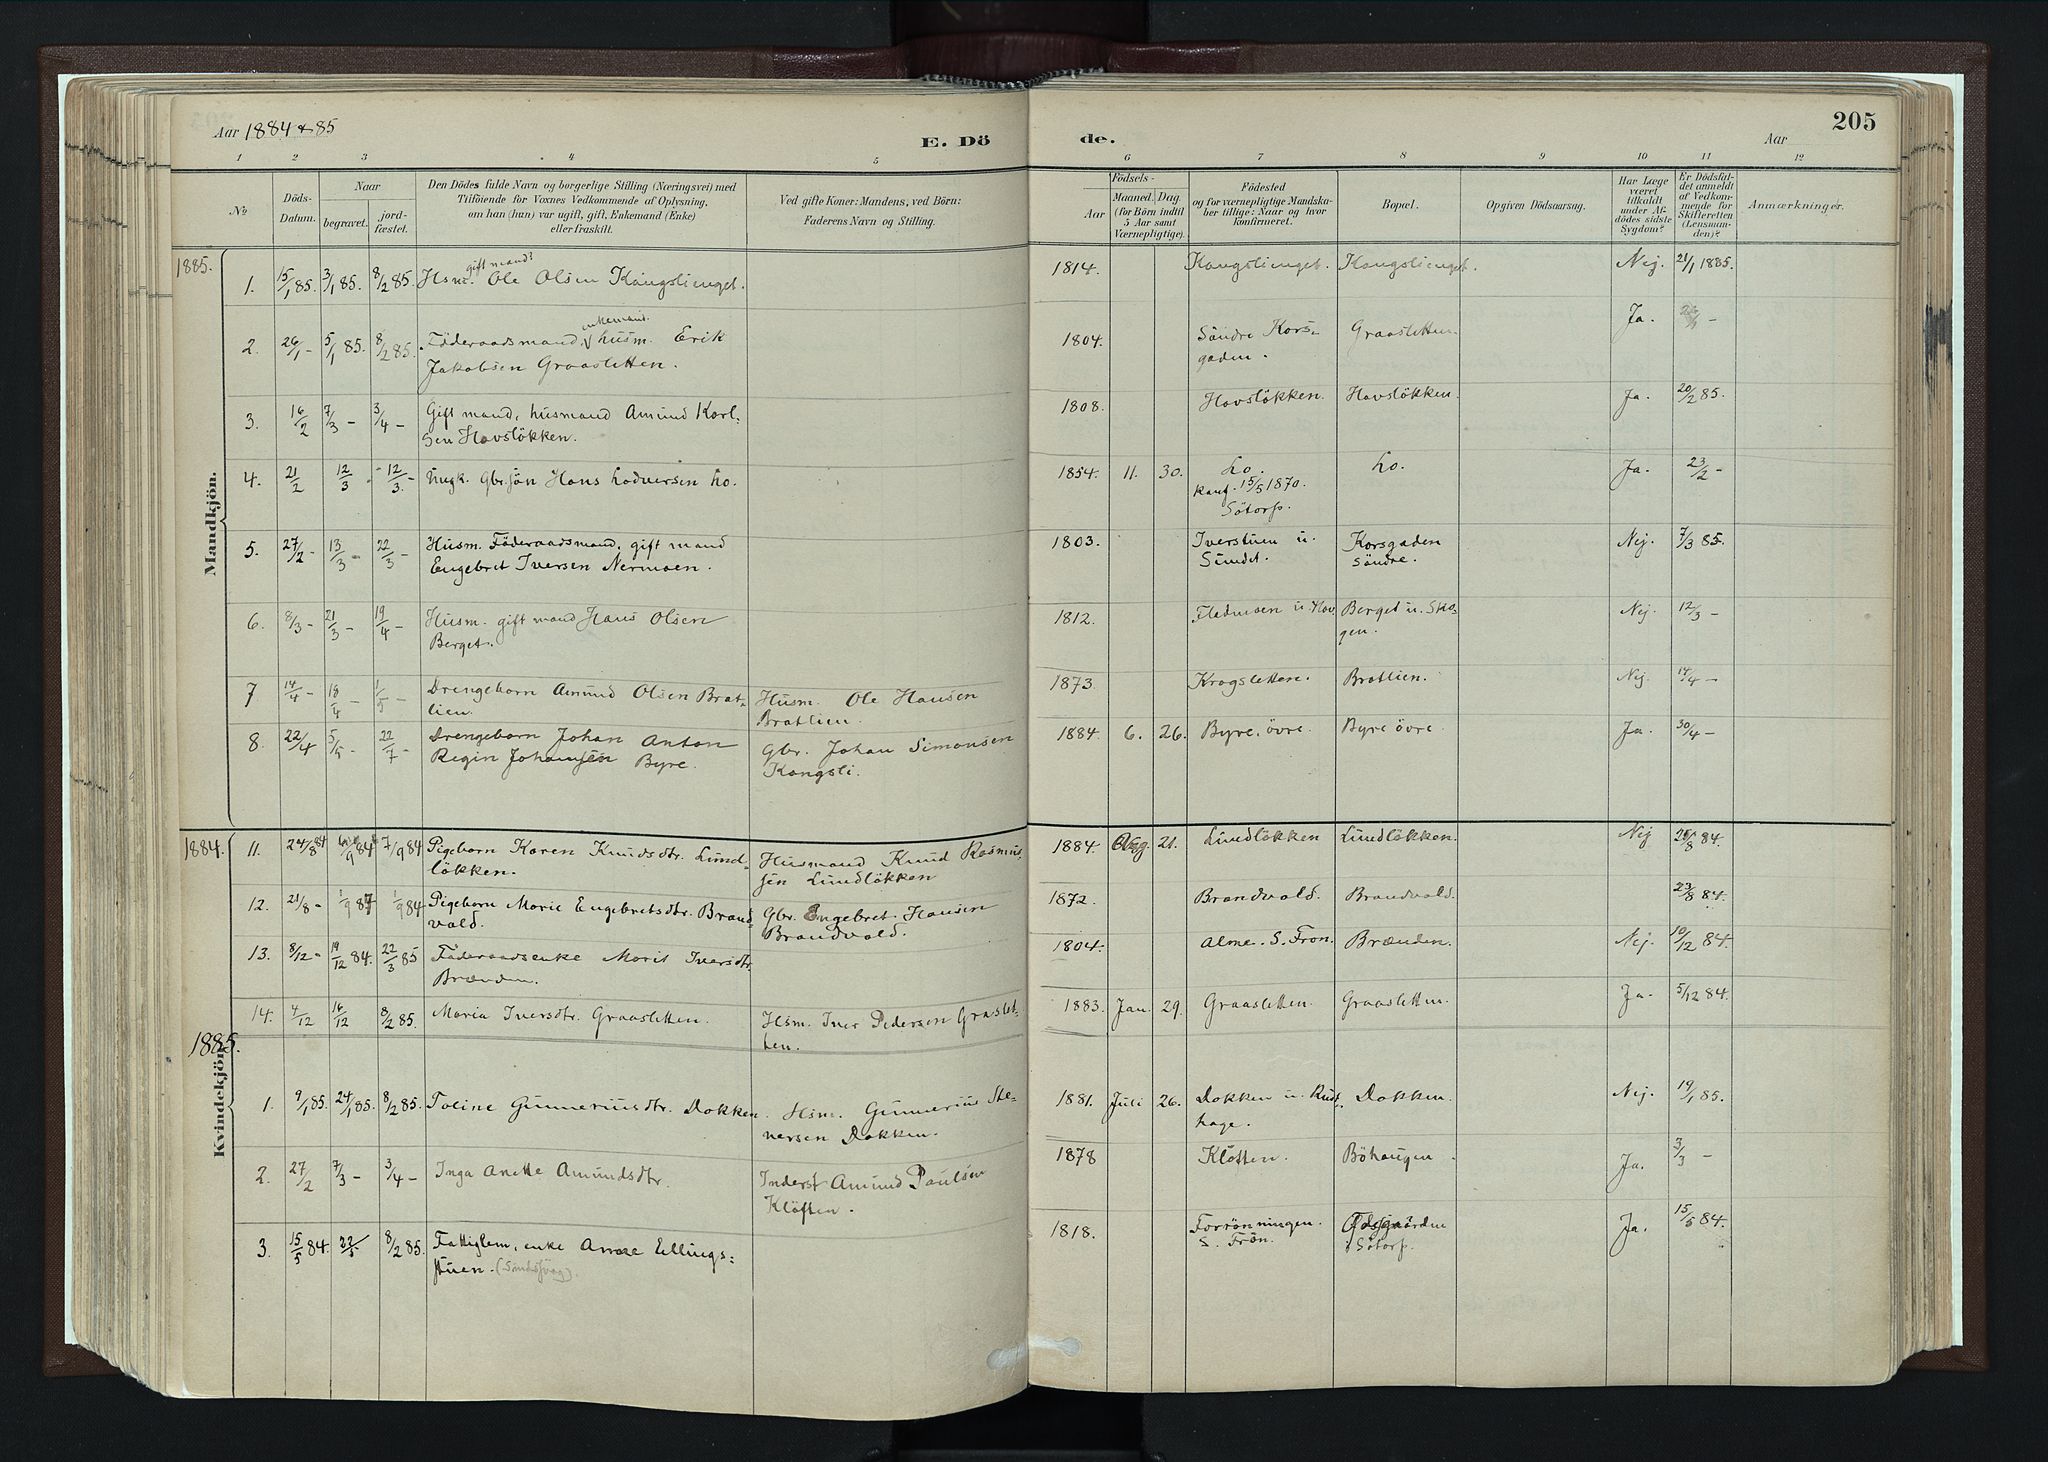 Aar 1884 & 85
E. Dö
de.
Aar
205
1 2 3 4 5 6 7 8 9 10 11 12
№
Döds-
Datum.
Naar
begravet.
jord-
fæstet.
Den Dödes fulde Navn og borgerlige Stilling (Næringsvei) med
Tilföiende for Voxnes Vedkommende af Oplysning,
om han (hun) var ugift, gift, Enkemand (Enke)
eller fraskilt.
Ved gifte Koner: Mandens, ved Börn:
Faderens Navn og Stilling.
Födsels-
Aar
Maaned. Dag.
(for Börn indtil
5 Aar samt
Værnepligtige).
Födested
og for værnepligtige Mandska-
ber tillige: Naar og hvor
konfirmeret.
Bopæl.
Opgiven Dödsaarsag.
Har Læge
været
tilkaldt
under Af-
dödes sidste
Sygdom?
Er Dödsfal-
det anmeldt
af Vedkom-
mende for
Skifteretten
(Lensman-
den)?
Anmærkninger.
Mandkjön.
1885.
gift mand?
1. 15/1 85. 3/1 85. 8/2 85. Hsm. Ole Olsen Kongslienget. 1814. Kongslienget. Kongslienget. Nej. 21/1 1885.
enkemand.
2. 26/1 - 5/1 85. 8/2 85. Föderaadsmand, husm. Erik 1804. Söndre Kors- Graasletten. Ja.
Jakobsen Graasletten. gaden.
3. 16/2 7/3 - 3/4 - Gift mand, husmand Amund Karl- 1808. Hovslökken. Hovslökken. Ja. 20/2 85.
sen Hovslökken.
4. 21/2 12/3 - 12/3 - Ungk. Gbr.sön Hans Lodversen Lo. 1854. 11. 30. Lo. Lo. Ja. 23/2 -
konf. 15/5 1870.
Sötorp.
5. 27/2 - 13/3 - 22/3 - Husm. Föderaadsmand, gift mand 1803. Iverstuen u. Korsgaden Nej. 7/3 85.
Engebret Iversen Nermoen. Sundet. Söndre.
6. 8/3 - 21/3 - 19/4 - Husm. gift mand Hans Olsen 1812. Flatmoen u. Hov Berget u. Sko- Nej. 12/3 -
Berget. gen.
7 14/4 - 18/4 - 1/5 - Drengebarn Amund Olsen Brat- Husm. Ole Hansen 1873. Kragsletten. Bratlien. Nej. 14/4 -
lien. Bratlien.
8. 22/4 5/5 22/7 - Drengebarn Johan Anton Gbr. Johan Simonsen 1884. 6. 26. Byre, övre. Byre övre. Ja. 30/4 -
Regin Johansen Byre. Kongsli.
1884. 11. 24/8 84 /9 84 7/9 84 Pigebarn Karen Knudsdtr. Lund- Husmand Knud Rasmus- 1884. Aug. 21. Lundlökken Lundlökken. Nej /8 84.
lökken. sen Lundlökken
12. 21/8 - 1/9 84 1/9 84 Pigebarn Marie Engebretsdtr. Brand- Gbr. Engebret Hansen 1872. Brandvold. Brandvold. 23/8 84.
vold. Brandvold.
13. 8/12 - 19/12 84. 22/3 85 Föderaadsenke Marit Iversdtr. 1804. Alme. S. Fron. Brænden. Nej. 10/12 84.
Brænden.
14. 4/12 16/12 8/2 85. Maria Iversdtr. Graasletten. Hsm. Iver Pedersen Graslet- 1883. Jan. 29. Graasletten. Graasletten. Ja. 5/12 84.
ten.
1885.
Kvindekjön.
1. 9/1 85. 24/1 85. 8/2 85. Toline Gunneriusdtr. Dokken. Hsm. Gunnerius Ste- 1881. Juli 26. Dokken u. Rust- Dokken. Nej. 19/1 85.
nersen Dokken. hage.
2. 27/2 7/3 - 3/4 - Inga Anette Amundsdtr. Inderst Amund Paulsen 1878 Klöften. Böhaugen. Ja. 3/3 -
Klöften.
3. 15/5 84. 22/5 8/2 85. Fattiglem, enke Anne Ellings- 1818. Forrönningen. Ja. 15/5 84.
stuen. S. Fron. i Sötorp.